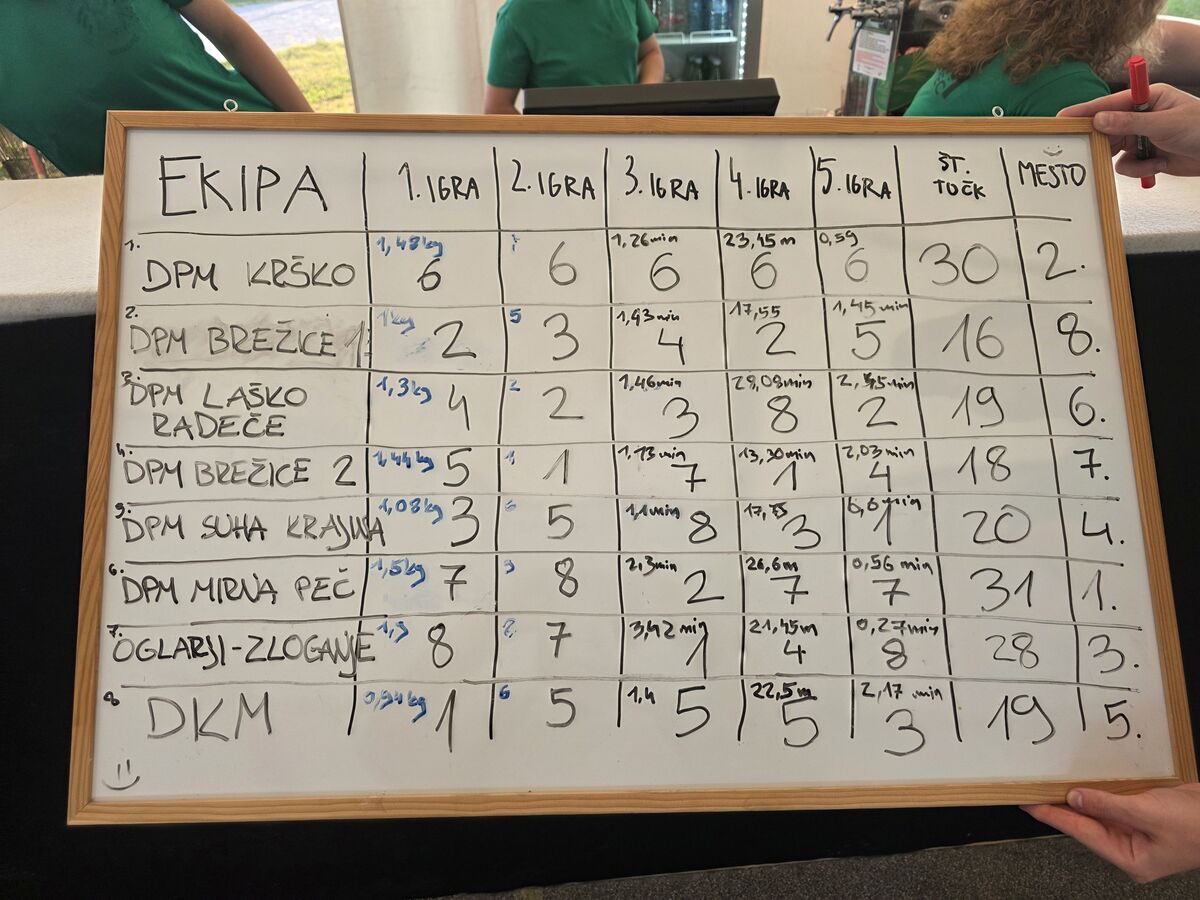 EKIPA 1. IGRA 2. IGRA 3. IGRA 4. IGRA 5. IGRA ŠT. TOČK MESTO
1. DPM KRŠKO 1,48kg 6 6 1,26min 6 23,45m 6 0,59 6 30 2.
2. DPM BREŽICE 1 1kg 2 5 3 1,43min 4 17,55 2 1,45min 5 16 8.
3. DPM LAŠKO RADEČE 1,3kg 4 2 2 1,46min 3 28,08min 8 2,45min 2 19 6.
4. DPM BREŽICE 2 1,44kg 5 1 1 1,13min 7 13,30min 1 2,03min 4 18 7.
5. DPM SUHA KRAJINA 1,08kg 3 5 1,1min 8 3 1 20 4.
6. DPM MIRNA PEČ 1,5kg 7 8 2,3min 2 26,6m 7 0,56 min 7 31 1.
7. OGLARJI-ZLOGANJE 8 7 3,42 min 1 21,45m 4 0,27min 8 28 3.
8 DKM 0,94kg 1 6 5 1,4 5 22,5m 5 2,17 min 3 19 5.